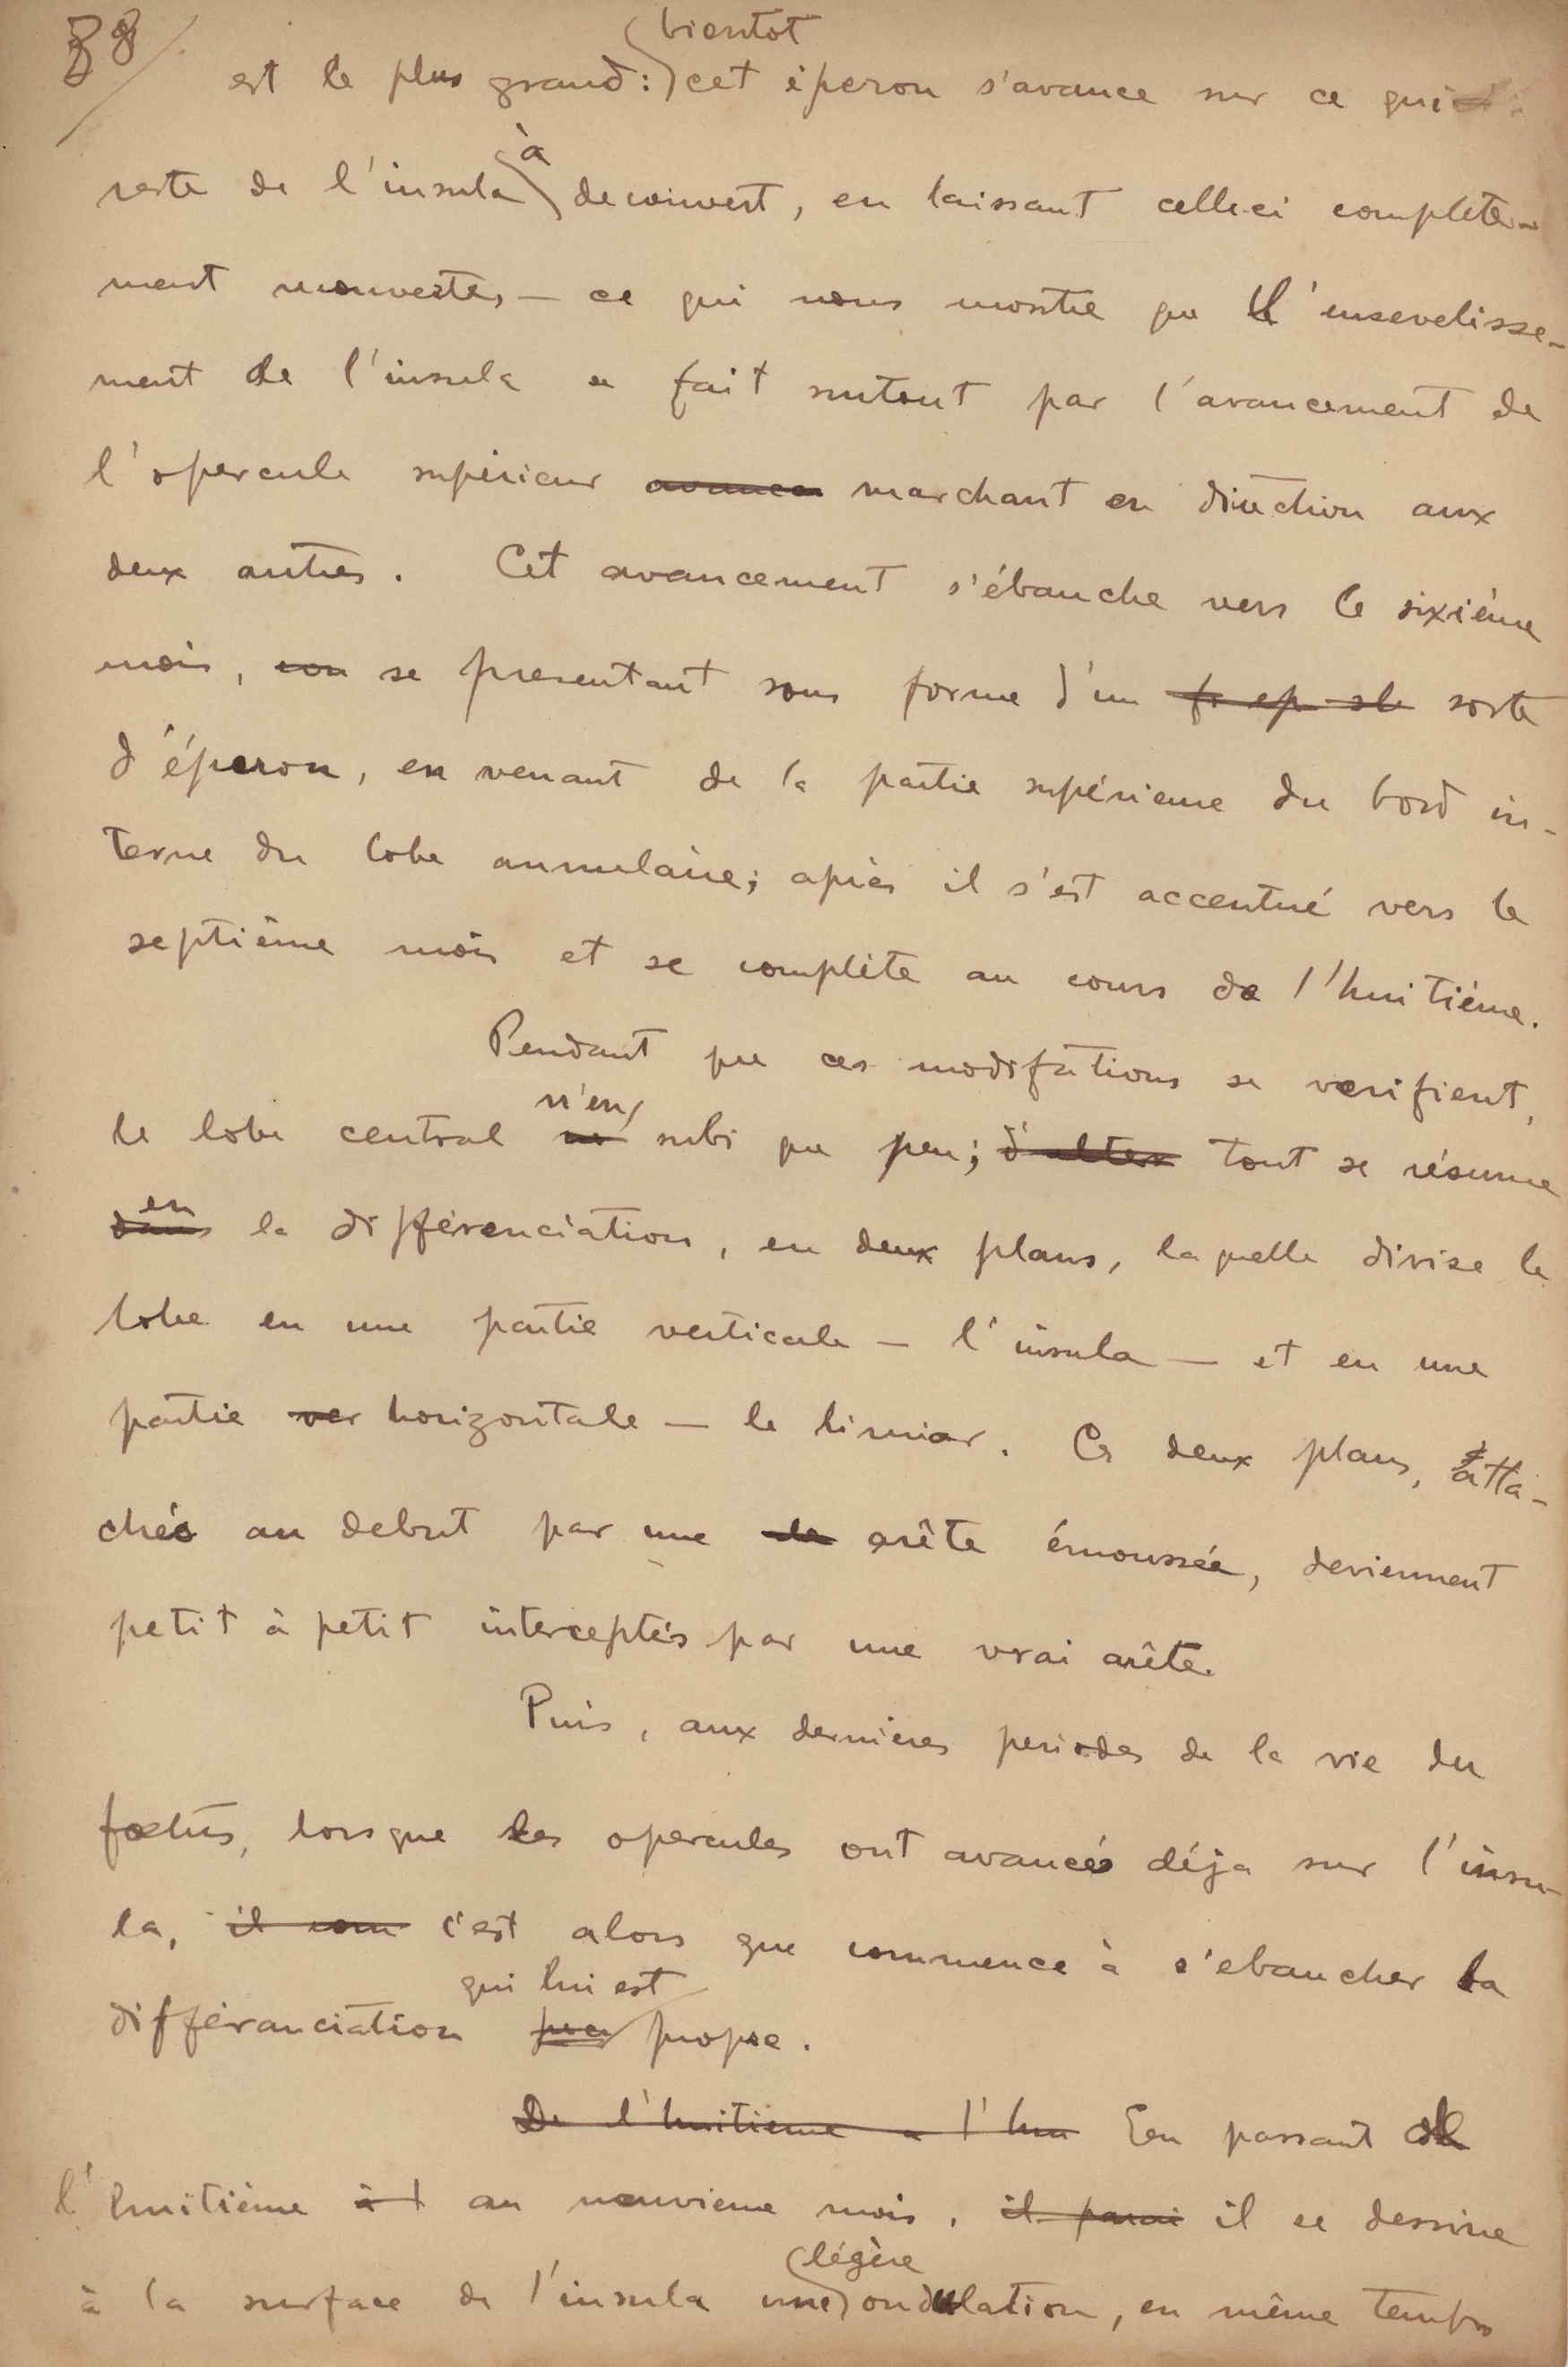 38
est le plus grand: bientot cet éperon s'avance sur ce qui
reste de l'insula à decouvert, en laissant celle-ci complete-
ment recouvertes — ce qui nous montre que l'ensevelisse-
ment de l'insula se fait surtout par l'avancement de
l'opercule supérieur avancer marchant en direction aux
deux autres. Cet avancement s'ébauche vers le sixième
mois, con se presentant sous forme d'un sorte
d'éperon, en venant de la partie supérieure du bord in-
terne du lobe annulaire; après il s'est accentué vers le
septième mois et se complète au cours de l'huitième.
Pendant que ces modifations se verifient,
le lobe central n'en subi que peu; d'alter tout se résume
dans en la différenciation, en deux plans, laquelle divise le
lobe en une partie verticale — l'insula — et en une
partie ver horizontale — le limiar. Ces deux plans, atta-
chés au debut par une de arête émoussée, deviennent
petit à petit interceptés par une vrai arête.
Puis, aux dernieres periodes de la vie du
fœtus, lorsque les opercules ont avancés déja sur l'insu-
la, il com c'est alors que commence à s'ebaucher la
différanciation qui lui est propre.
De l'huitieme a l'hu En passant de
l'huitième à l au neuvieme mois, il parai il se dessine
à la surface de l'insula une légère ondulation, en même temps